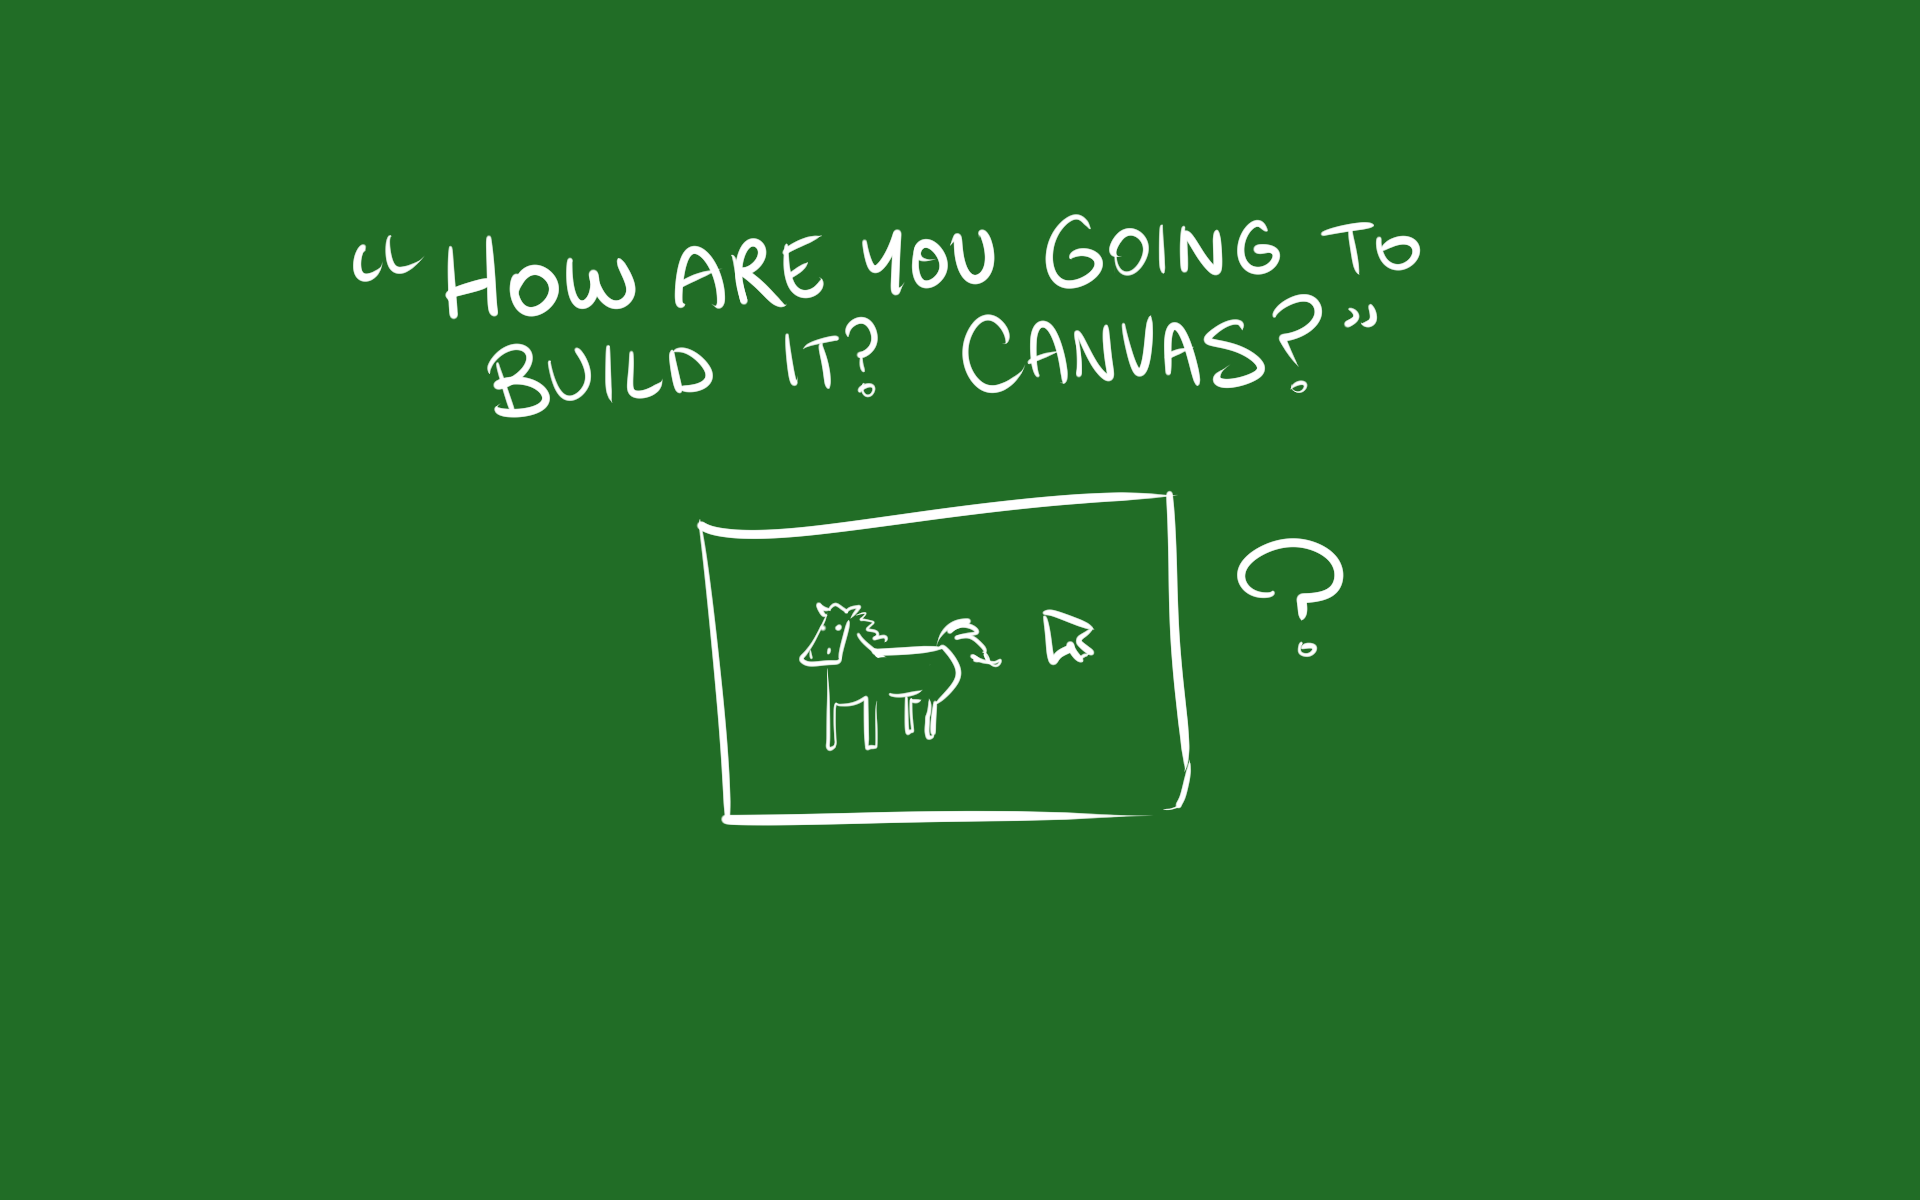 “HOW ARE YOU GOING TO
BUILD IT? CANVAS?”
?